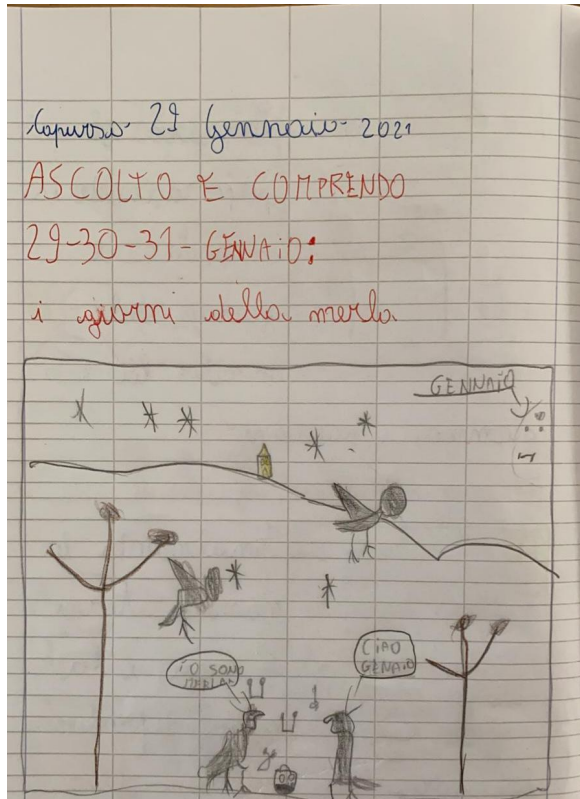 Capurso 29 Gennaio 2021
ASCOLTO E COMPRENDO
29-30-31-GENNAiO:
i giorni della merla
GENNAiO
iO SONO
MERLAN
CiAO
GENAiO